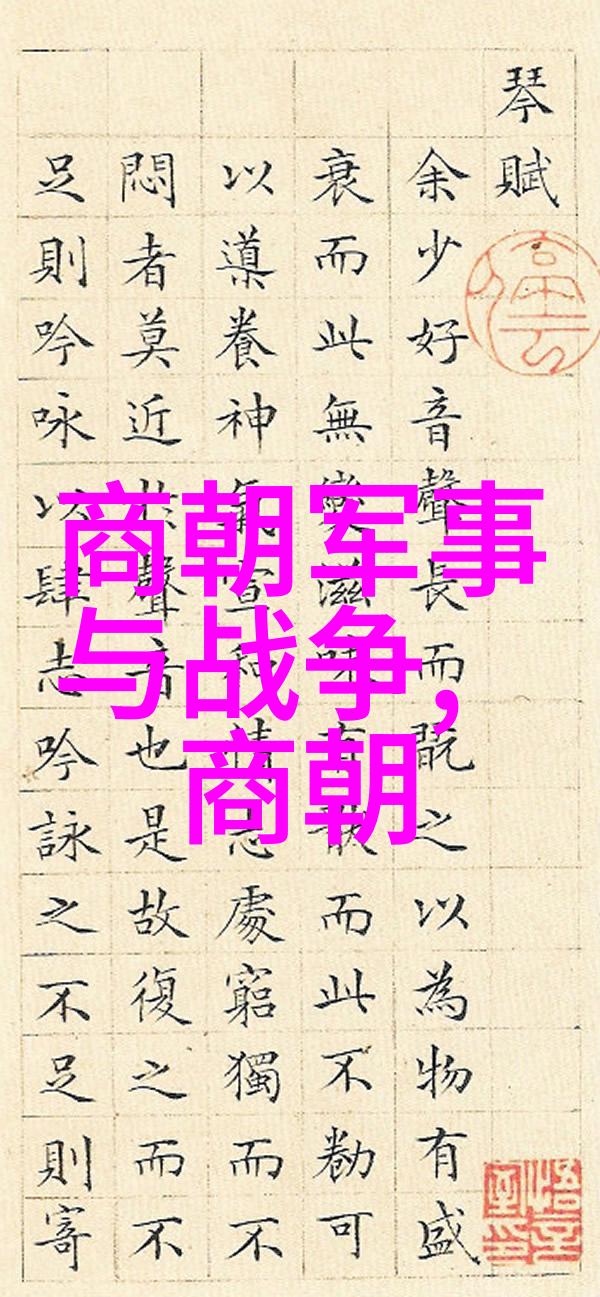 琴賦
余少好音聲長而翫之以為物有盛
衰而此無變滋味有猒而此不勌可
以導養神氣宣和情志處窮獨而不
悶者莫近於聲音也是故復之而不
足則吟咏以肆志吟詠之不足則寄
商朝军事
与战争,
商朝